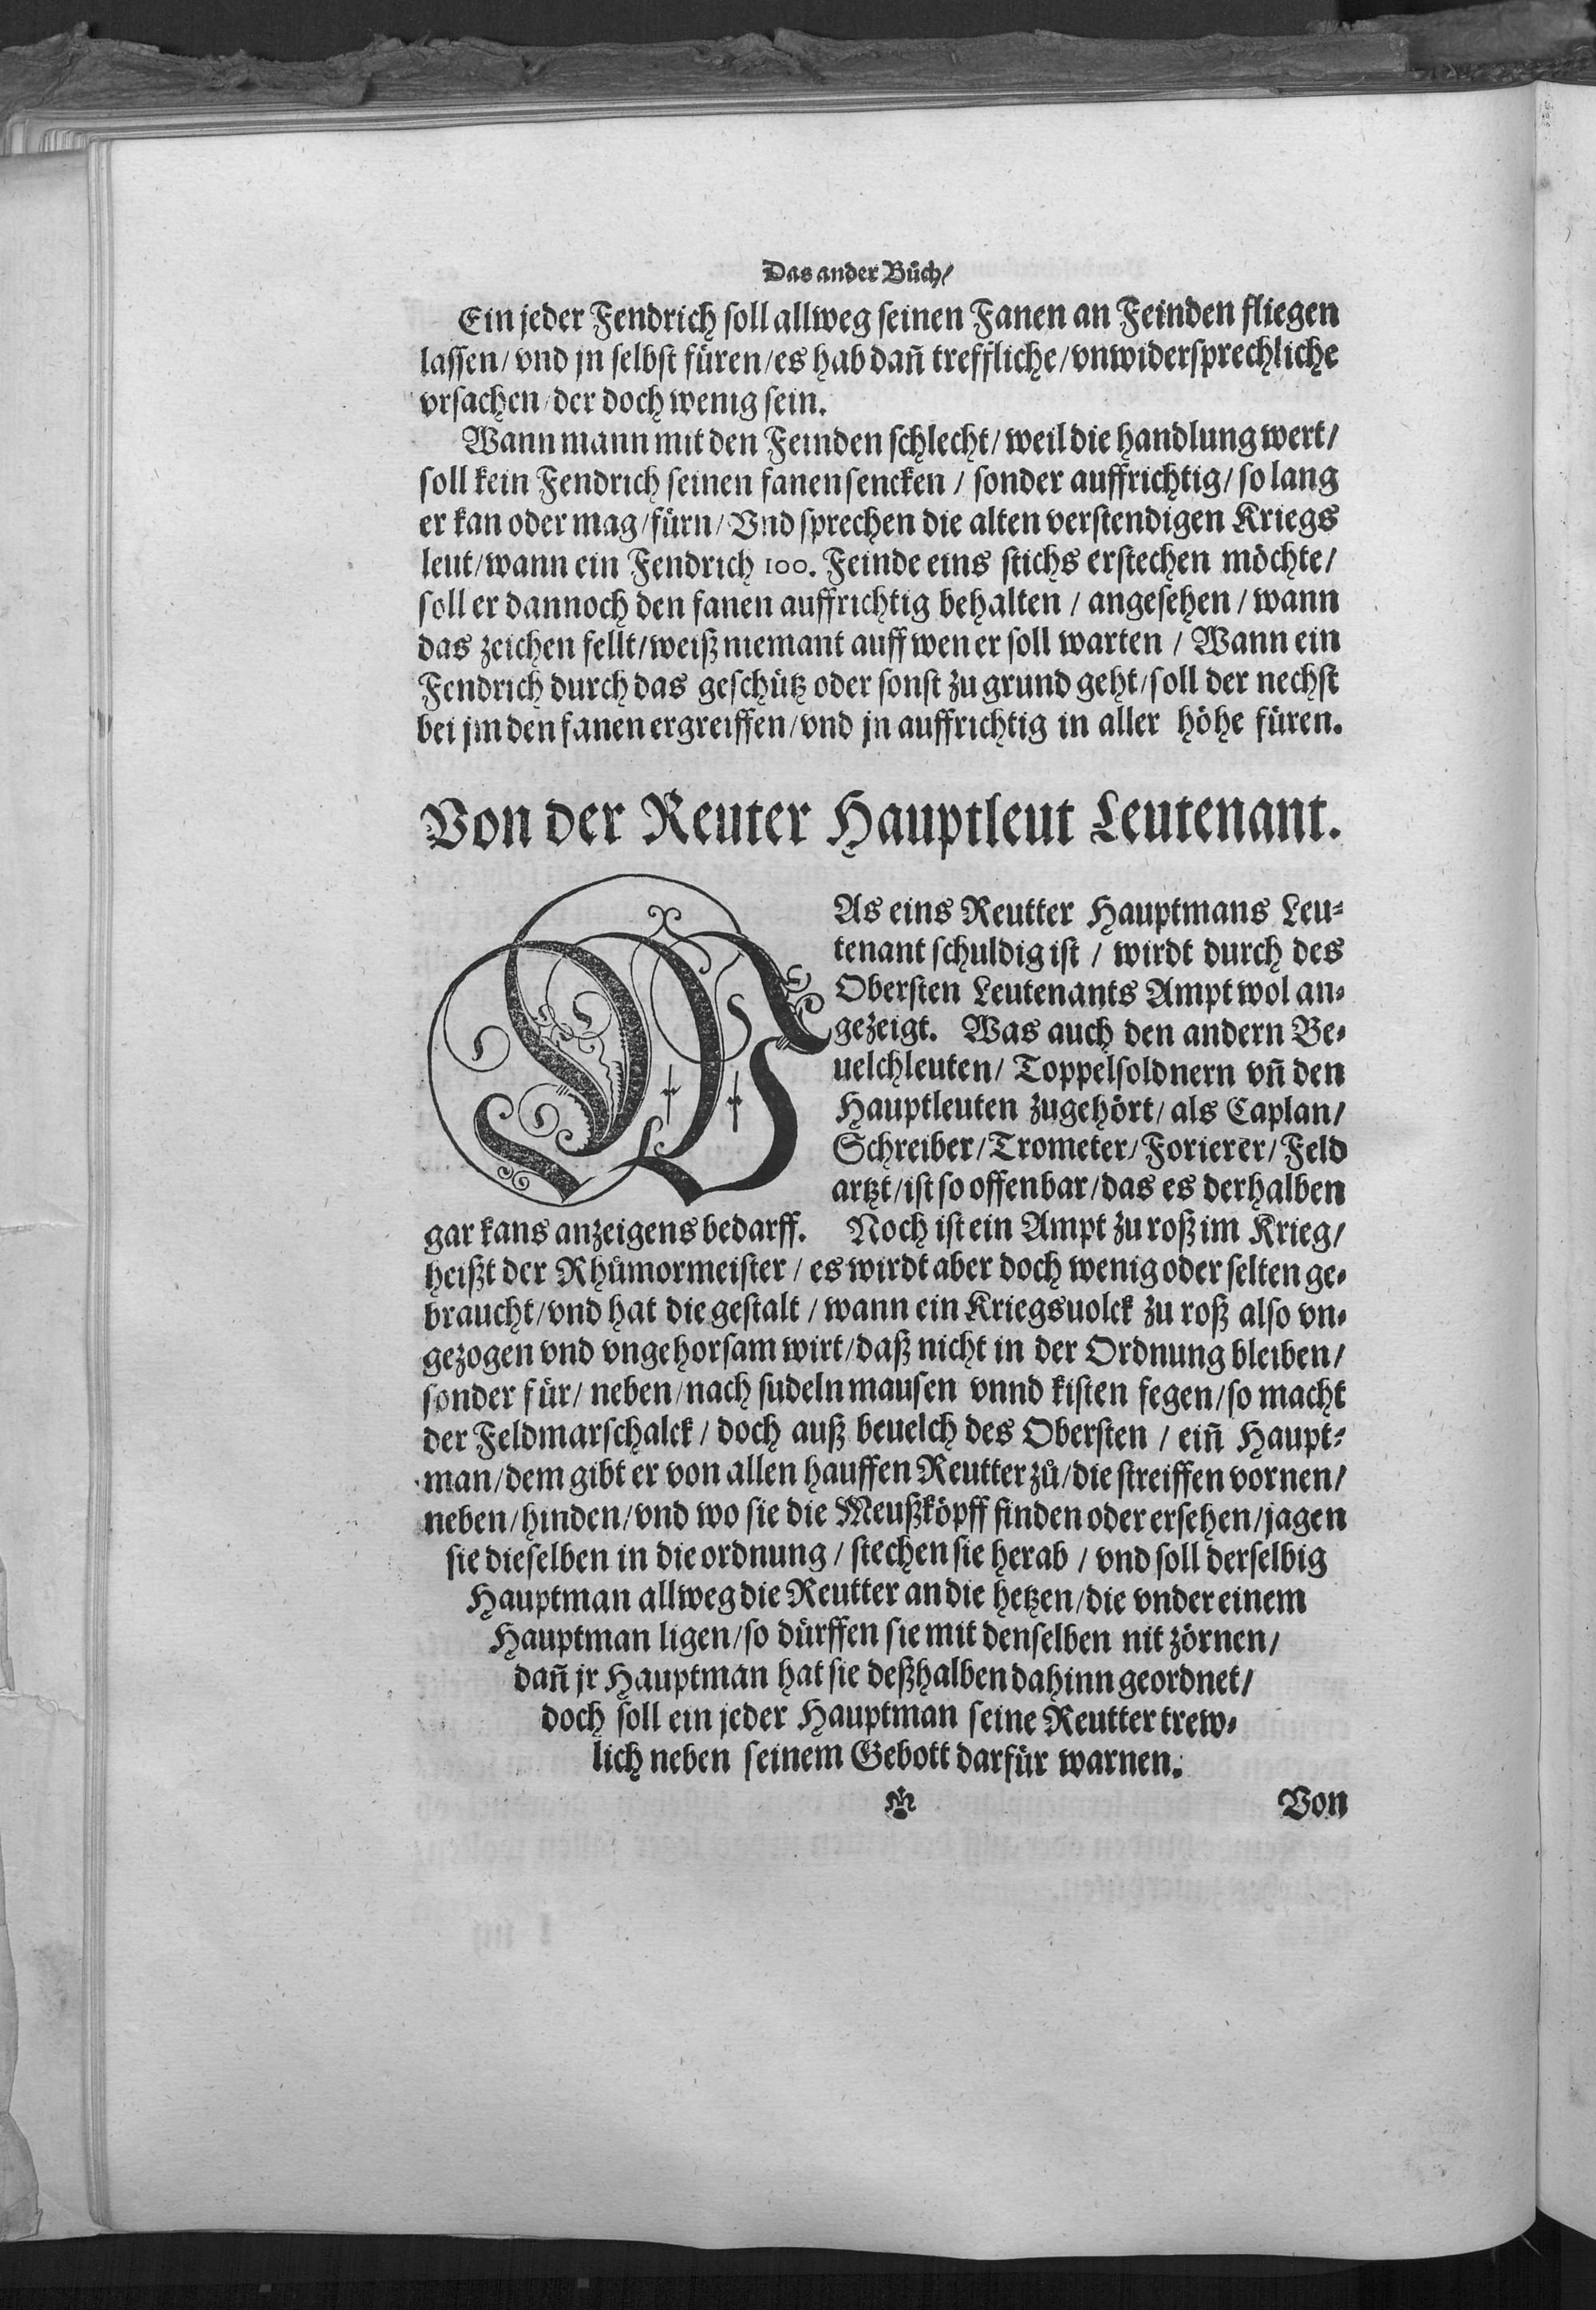 Das ander Bůch/
Ein jeder Fendrich soll allweg seinen Fanen an Feinden fliegen
lassen/ vnd jn selbst füren/es hab dañ treffliche/vnwidersprechliche
vrsachen/der doch wenig sein.
Wann mann mit den Feinden schlecht/ weil die handlung wert/
soll kein Fendrich seinen fanen sencken / sonder auffrichtig/ so lang
er kan oder mag/fürn/ Vnd sprechen die alten verstendigen Kriegs
leut/wann ein Fendrich 100. Feinde eins stichs erstechen möchte/
soll er dannoch den fanen auffrichtig behalten / angesehen / wann
das zeichen fellt/weiß niemant auff wen er soll warten / Wann ein
Fendrich durch das geschütz oder sonst zu grund geht/soll der nechst
bei jm den fanen ergreiffen/vnd jn auffrichtig in aller höhe füren.
Von der Reuter Hauptleut Leutenant.
WAs eins Reutter Hauptmans Leu-
tenant schuldig ist / wirdt durch des
Obersten Leutenants Ampt wol an-
gezeigt. Was auch den andern Be-
uelchleuten/ Toppelsoldnern vñ den
Hauptleuten zugehört/ als Caplan/
Schreiber/Trometer/Forierer/Feld
artzt/ist so offenbar/das es derhalben
gar kans anzeigens bedarff. Noch ist ein Ampt zu roß im Krieg/
heißt der Rhůmormeister / es wirdt aber doch wenig oder selten ge-
braucht/vnd hat die gestalt / wann ein Kriegsuolck zu roß also vn-
gezogen vnd vngehorsam wirt/daß nicht in der Ordnung bleiben/
sonder für/ neben/nach sudeln mausen vnnd kisten fegen/so macht
der Feldmarschalck / doch auß beuelch des Obersten / eiñ Haupt-
man/dem gibt er von allen hauffen Reutter zů/die streiffen vornen/
neben/hinden/vnd wo sie die Meußköpff finden oder ersehen/jagen
sie dieselben in die ordnung / stechen sie herab / vnd soll derselbig
Hauptman allweg die Reutter an die hetzen/die vnder einem
Hauptman ligen/so dürffen sie mit denselben nit zörnen/
dañ jr Hauptman hat sie deßhalben dahinn geordnet/
doch soll ein jeder Hauptman seine Reutter trew-
lich neben seinem Gebott darfür warnen.
Von